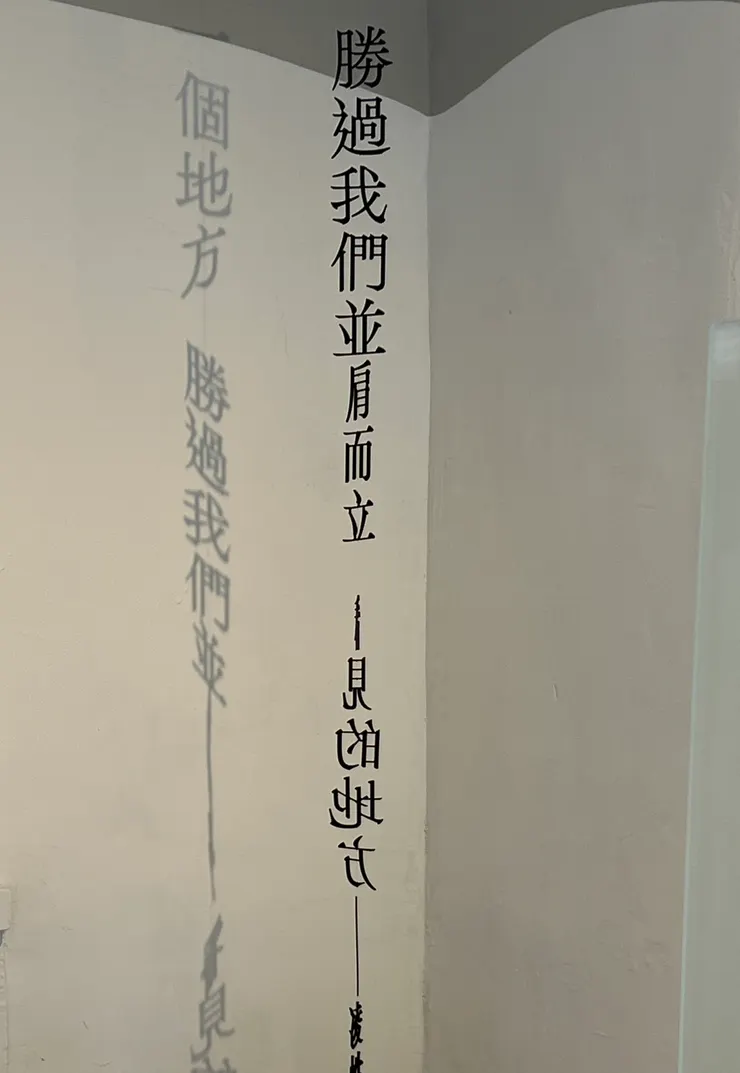 勝過我們並肩而立 見的地方——
一個地方 勝過我們並 見